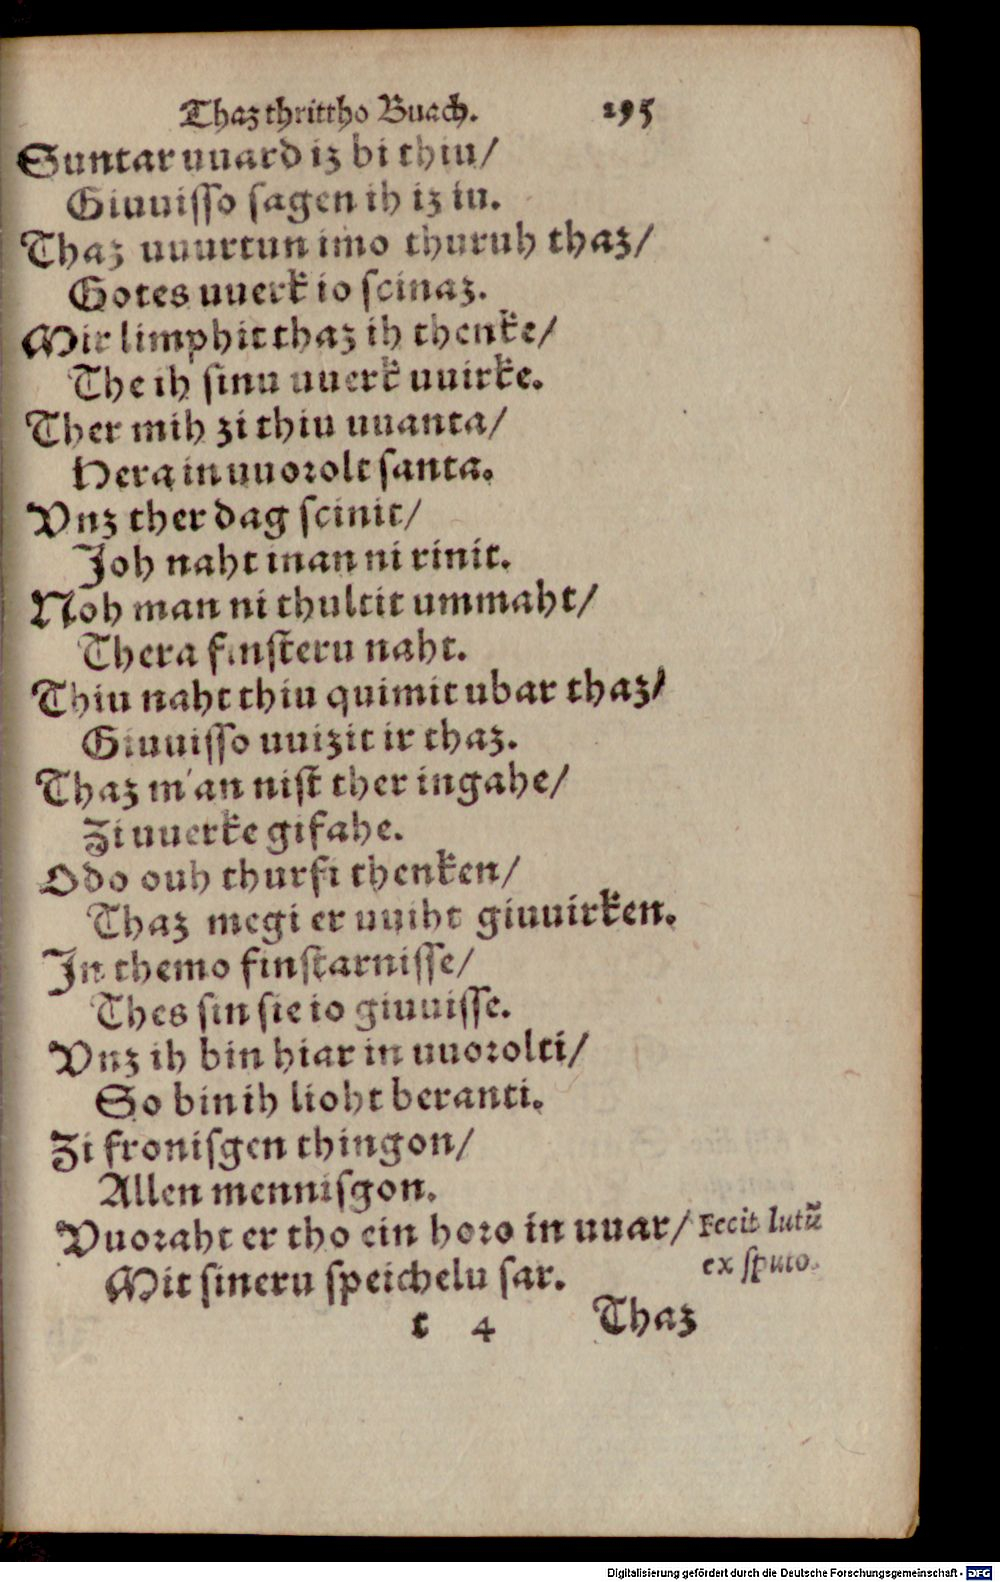 Thaz thrittho Buach. 295
Suntar uuard iz bi thiu/
Giuuisso sagen ih iz iu.
Thaz uuurtun imo thuruh thaz/
Gotes uuerk io scinaz.
Mir limphit thaz ih thenke/
The ih sinu uuerk uuirke.
Ther mih zi thiu uuanta/
Hera in uuorolt santa.
Vnz ther dag scinit/
Joh naht inan ni rinit.
Noh man ni thultit ummaht/
Thera finsteru naht.
Thiu naht thiu quimit ubar thaz/
Giuuisso uuizit ir thaz.
Thaz man nist ther ingahe/
Zi uuerke gifahe.
Odo ouh thurfi thenken/
Thaz megi er uuiht giuuirken.
In themo finstarnisse/
Thes sin sie io giuuisse.
Vnz ih bin hiar in uuorolti/
So bin ih lioht beranti.
Zi fronisgen thingon/
Allen mennisgon.
Vuoraht er tho ein horo in uuar/ Fecit lutū
Mit sineru speichelu sar. ex sputo.
t 4 Thaz
Digitalisierung gefördert durch die Deutsche Forschungsgemeinschaft - DFG